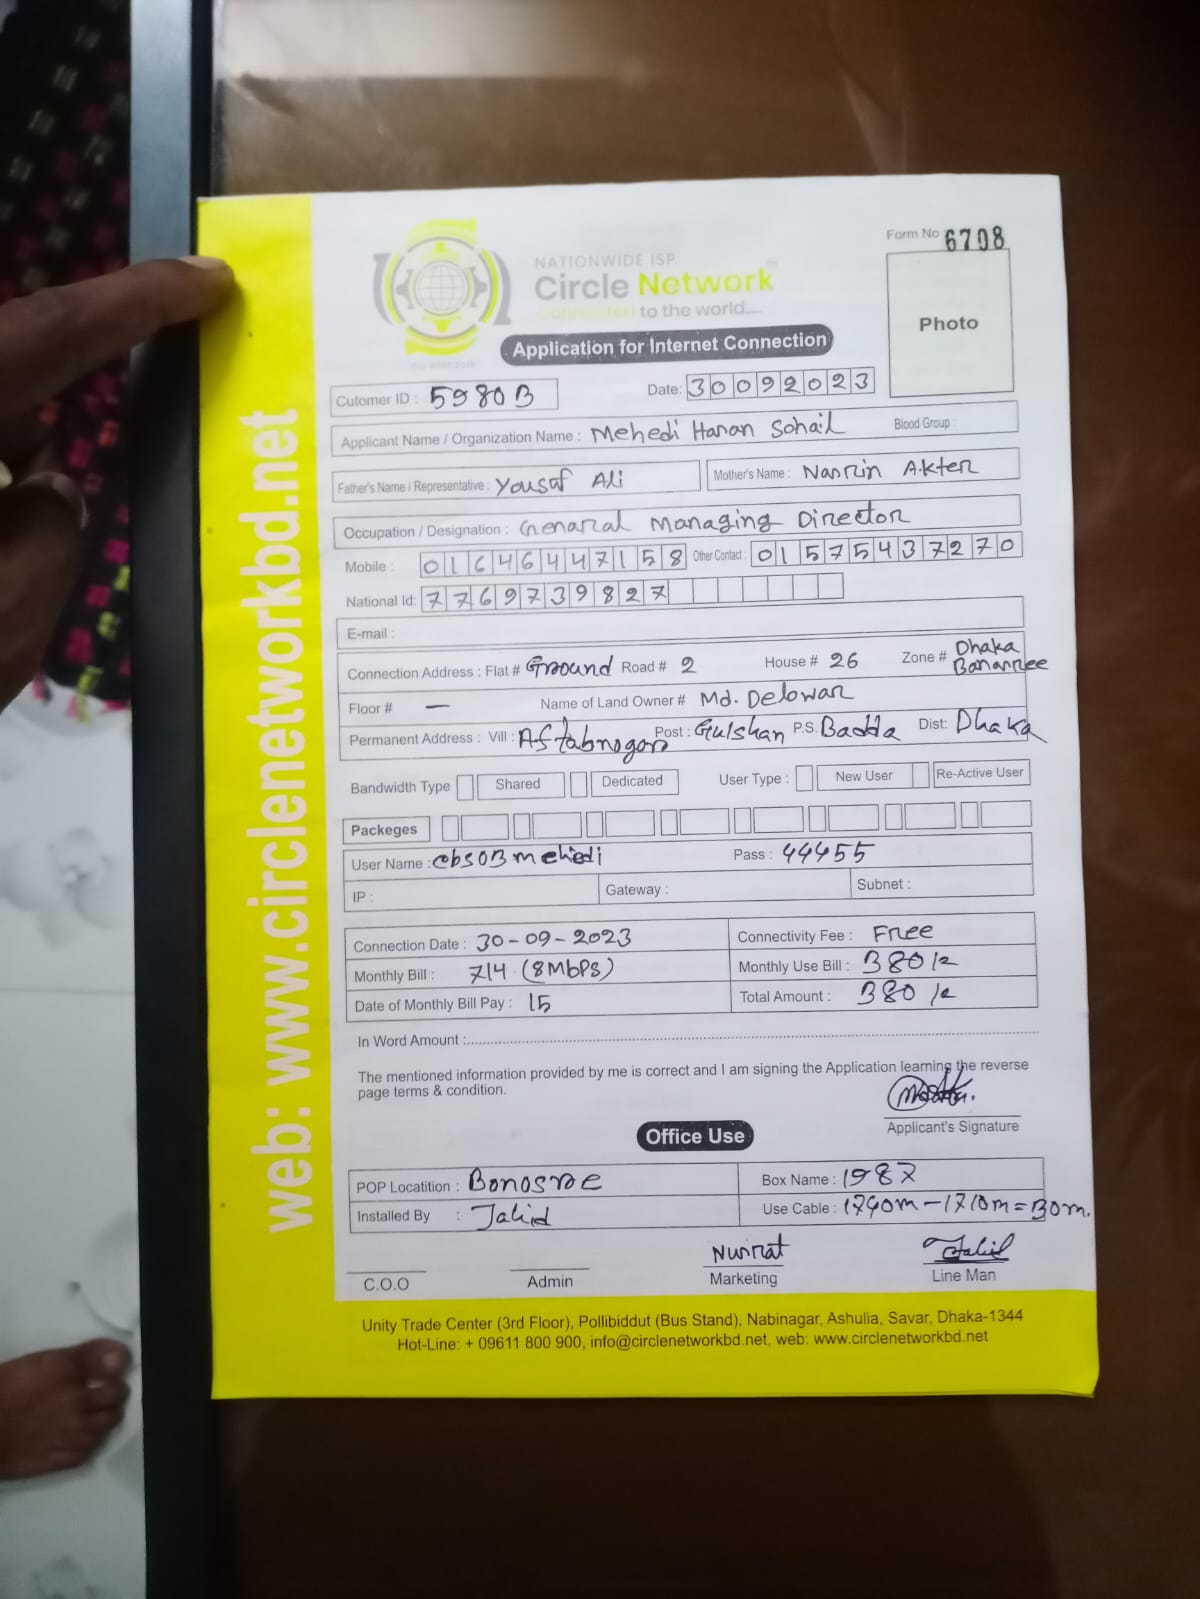 Form No 6708
NATIONWIDE ISP
Circle Network
Connected to the world....
Photo
Application for Internet Connection
Cutomer ID : 5980B
Date: 30092023
Applicant Name / Organization Name : Mehedi Hasan Sohail Blood Group :
Father's Name / Representative : Yousaf Ali Mother's Name : Nasrin Akter
Occupation / Designation : Genaral Managing Director
Mobile : 01646447158 Other Contact : 01575437270
National Id: 7769739827
E-mail :
Connection Address : Flat # Ground Road # 2 House # 26 Zone # Dhaka Banasree
Floor # — Name of Land Owner # Md. Delowar
Permanent Address : Vill : Aftabnogor Post : Gulshan P.S. Badda Dist: Dhaka
Bandwidth Type Shared Dedicated User Type : New User Re-Active User
Packeges
User Name : cbsOBmehedi Pass : 44455
IP : Gateway : Subnet :
Connection Date : 30-09-2023 Connectivity Fee : Free
Monthly Bill : 714 (8Mbps) Monthly Use Bill : 380/=
Date of Monthly Bill Pay : 15 Total Amount : 380/=
In Word Amount :
The mentioned information provided by me is correct and I am signing the Application learning the reverse
page terms & condition.
Applicant's Signature
Office Use
POP Locatition : Bonosree Box Name : 1987
Installed By : Jahid Use Cable : 1740m - 1710m = 30m.
Nusrat
C.O.O Admin Marketing Line Man
Unity Trade Center (3rd Floor), Pollibiddut (Bus Stand), Nabinagar, Ashulia, Savar, Dhaka-1344
Hot-Line: + 09611 800 900, info@circlenetworkbd.net, web: www.circlenetworkbd.net
web: www.circlenetworkbd.net